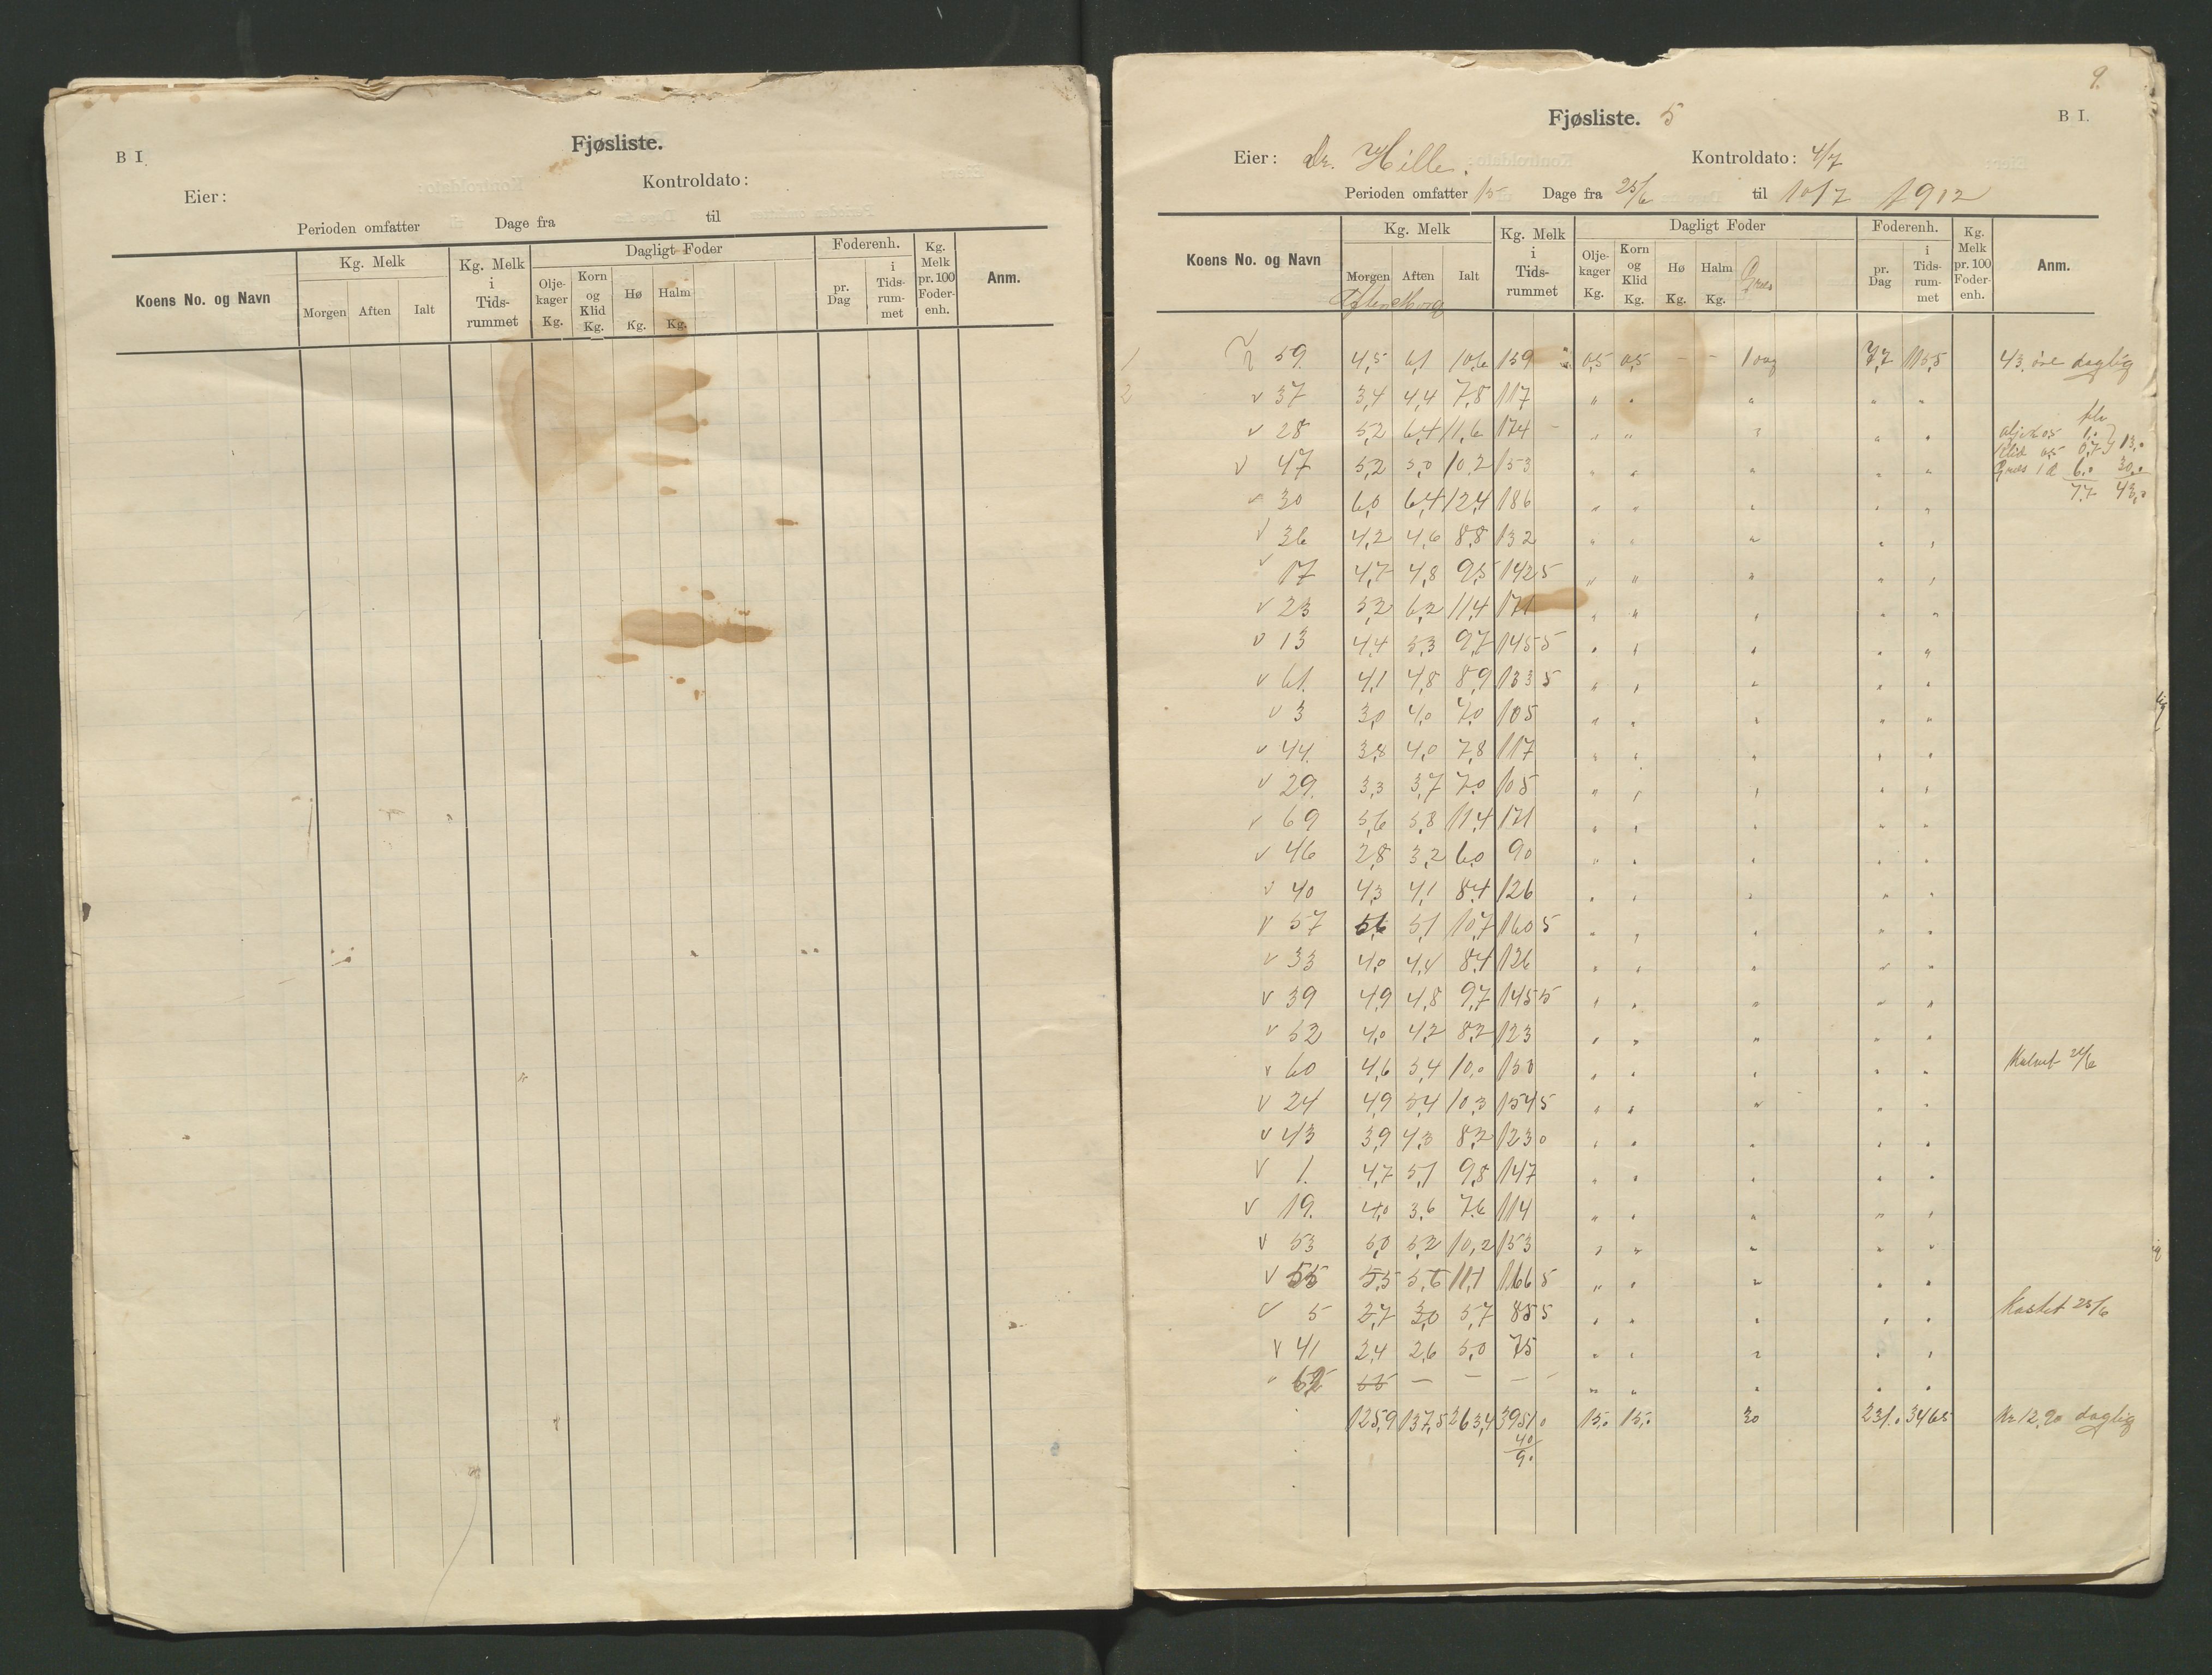 B I.
Fjøsliste.
Eier:
Kontroldato:
Perioden omfatter Dage fra til
Koens No. og Navn
Kg. Melk
Morgen Aften Ialt
Kg. Melk i Tids-rummet
Dagligt Foder
Olje-kager Kg.
Korn og Klid Kg.
Hø Kg.
Halm Kg.
Foderenh.
pr. Dag
i Tids-rum-met
Kg. Melk pr. 100 Foder-enh.
Anm.
9.
Fjøsliste. 5
B I.
Eier: Dr. Hille. Kontroldato: 4/7
Perioden omfatter 15 Dage fra 25/6 til 10/7 1912
Koens No. og Navn
Kg. Melk
Morgen Aften Ialt
Aften Morg
Kg. Melk i Tids-rummet
Dagligt Foder
Olje-kager Kg.
Korn og Klid Kg.
Hø Kg.
Halm Kg.
Græs
Foderenh.
pr. Dag
i Tids-rum-met
Kg. Melk pr. 100 Foder-enh.
Anm.
1 59. 4,5 6,1 10,6 159 0,5 0,5 - - 1 7,7 115,5 43 øre daglig
2 v 37 3,4 4,4 7,8 117 " " " " "
v 28 5,2 6,4 11,6 174 " " " " " oljek 0,5 1,0 } 13,0
v 47 5,2 5,0 10,2 153 " " " " " Klid 0,5 0,7
Græs 1 d 6,0 30,0
v 30 6,0 6,4 12,4 186 " " " " " 7,7 43,0
v 36 4,2 4,6 8,8 132 " " " " "
v 17 4,7 4,8 9,5 142 5 " " " " "
v 23 5,2 6,2 11,4 171 " " " " "
v 13 4,4 5,3 9,7 145 5 " " " " "
v 61. 4,1 4,8 8,9 133 5 " " " " "
v 3 3,0 4,0 7,0 105 " " " " "
v 44. 3,8 4,0 7,8 117 " " " " "
v 29. 3,3 3,7 7,0 105 " " " " "
v 69 5,6 5,8 11,4 171 " " " " "
v 46 2,8 3,2 6,0 90 " " " " "
v 40 4,3 4,1 8,4 126 " " " " "
v 57 5,6 5,1 10,7 160 5 " " " " "
v 33 4,0 4,4 8,4 126 " " " " "
v 39 4,9 4,8 9,7 145 5 " " " " "
v 52 4,0 4,2 8,2 123 " " " " "
v 60 4,6 5,4 10,0 150 " " " " " Kalvet 24/6
v 24 4,9 5,4 10,3 154 5 " " " " "
v 43 3,9 4,3 8,2 123 0 " " " " "
v 1. 4,7 5,1 9,8 147 " " " " "
v 19. 4,0 3,6 7,6 114 " " " " "
v 53 5,0 5,2 10,2 153 " " " " "
v 55 5,5 5,6 11,1 166 5 " " " " "
v 5 2,7 3,0 5,7 85 5 " " " " " Kastet 25/6
v 41 2,4 2,6 5,0 75 " " " " "
— — — " " " " "
125,9 137,5 263,4 3951 0 15,0 15,0 30 231,0 3465 Kr 12,90 daglig
40
9.